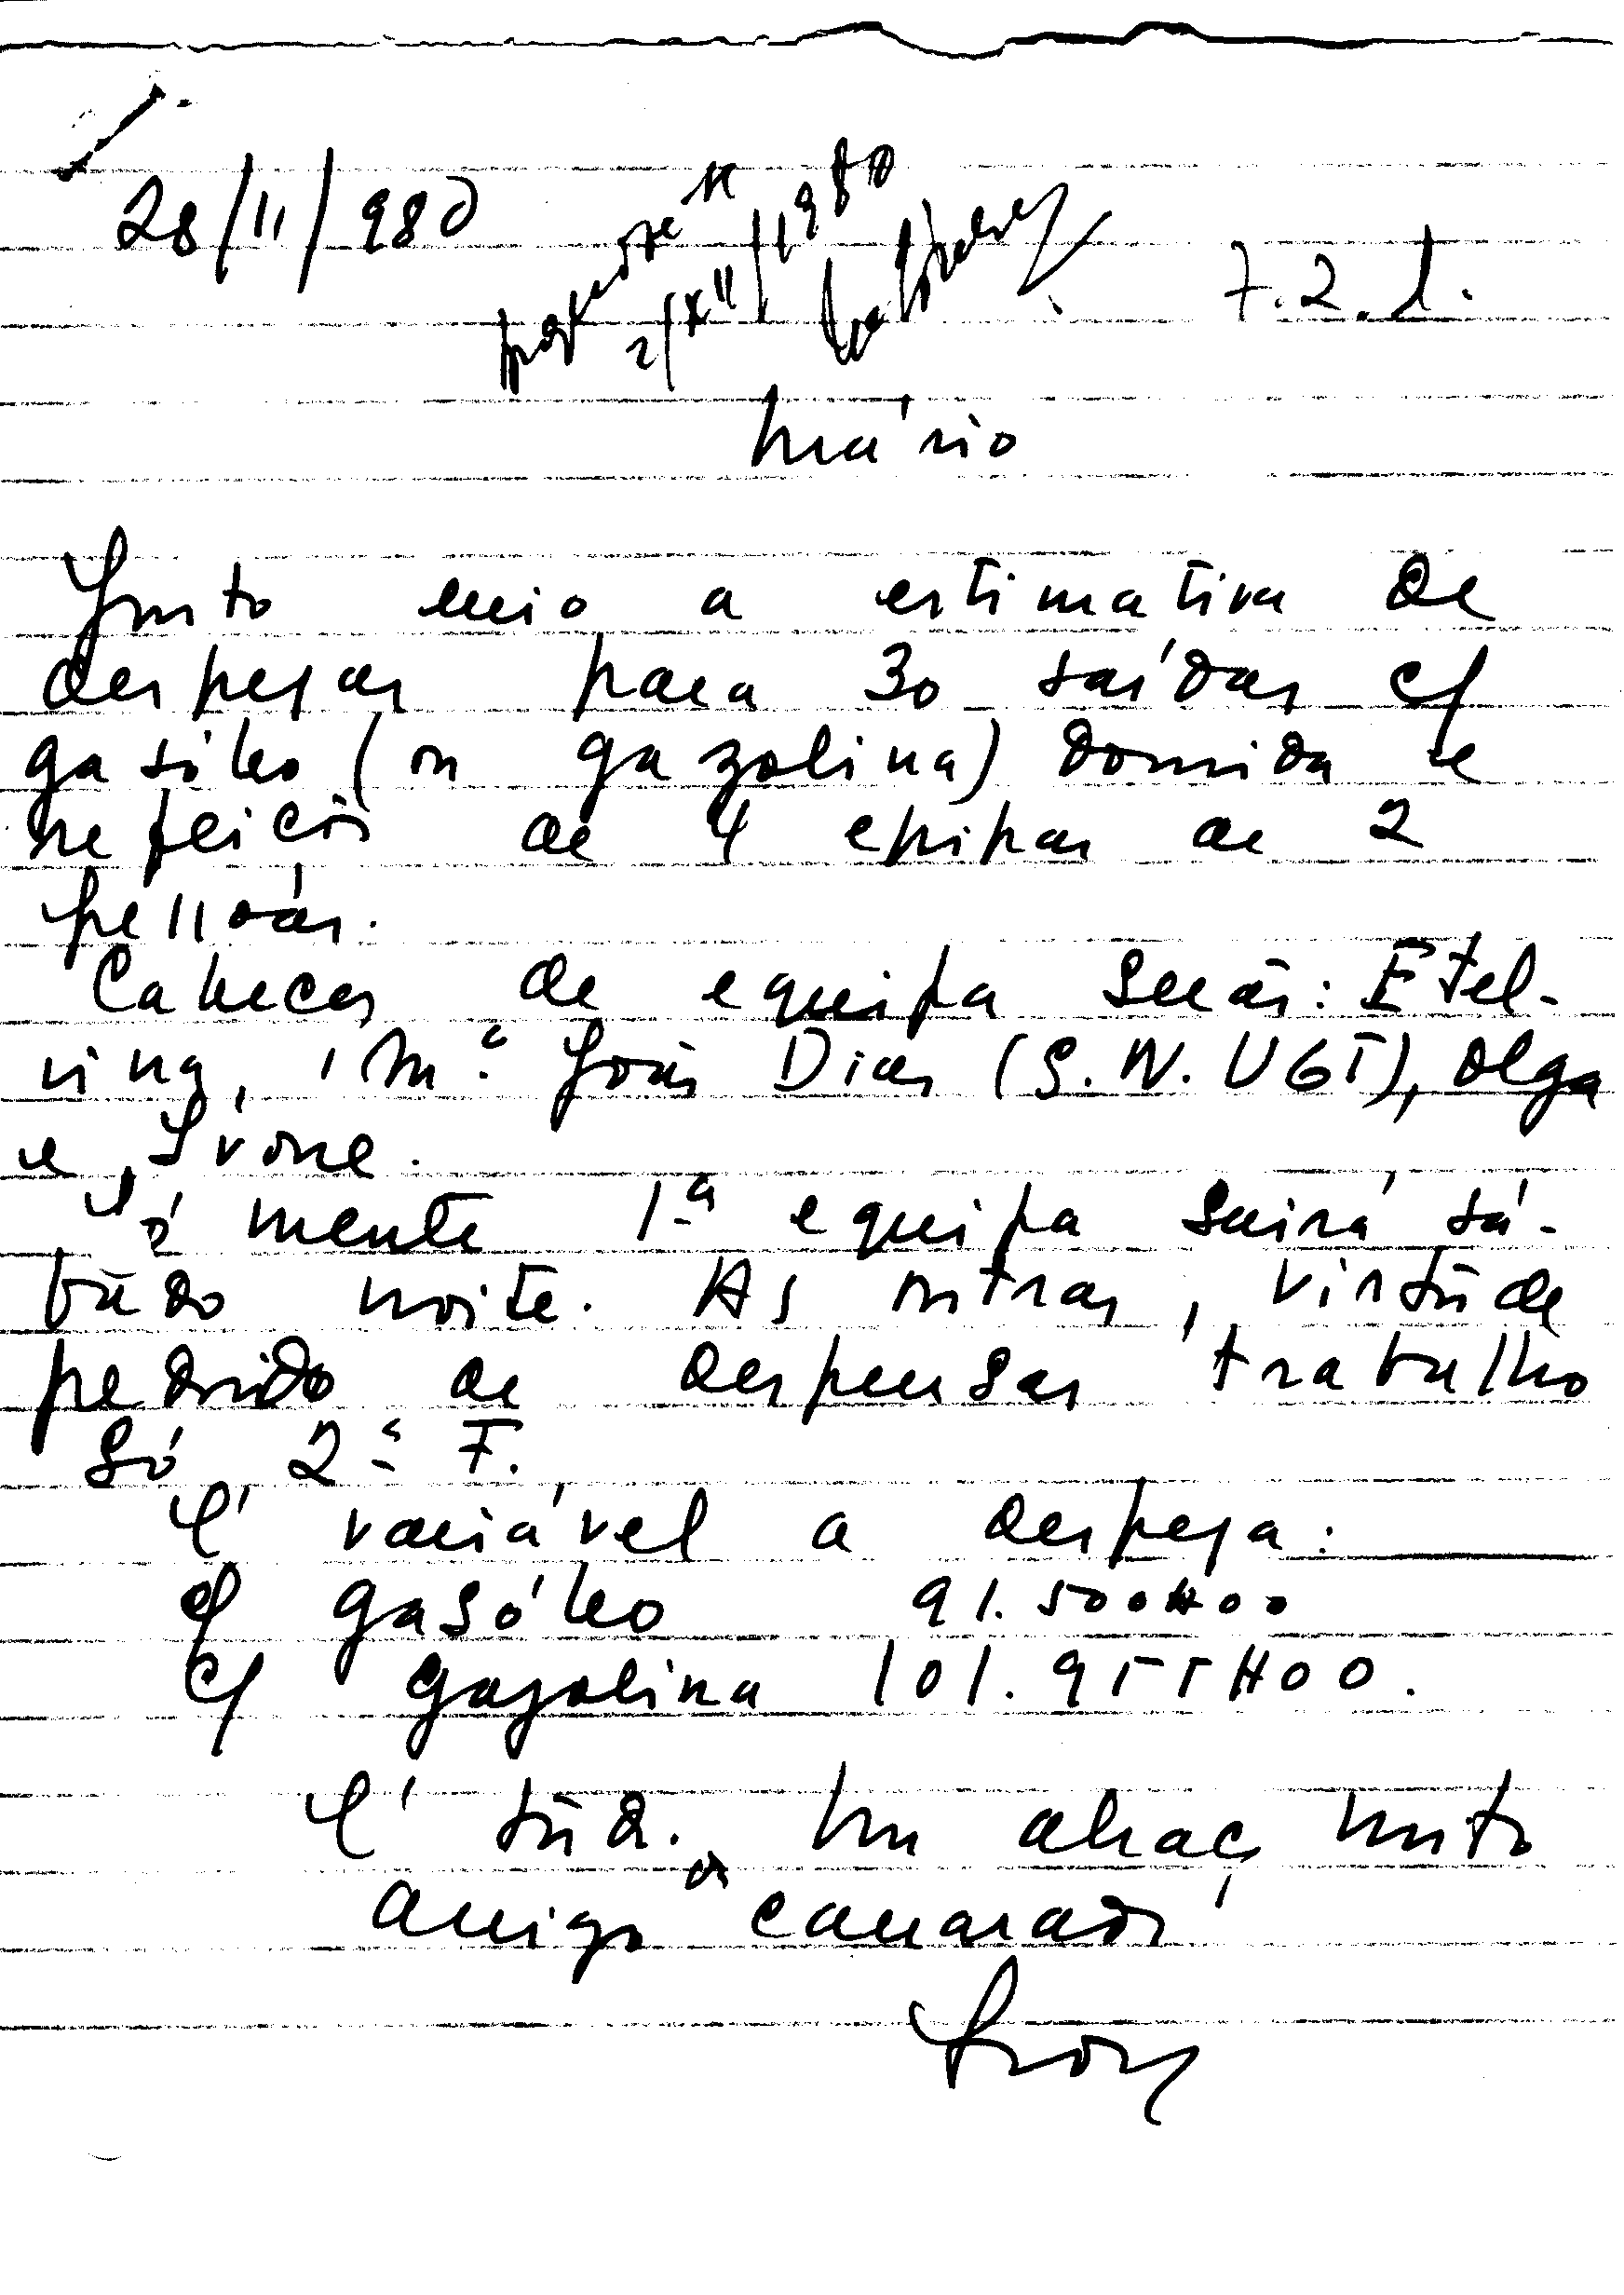 28/11/980
arquive-se
2/XII/1980
7.2.1.
Mário
Junto envio a estimativa de
despesas para 30 saídas c/
gasóleo (ou gazolina) dormida e
refeicõs de 4 epipas de 2
pessoas.
Cabecas de equipa serão: Etel-
vina, Mª João Dias (S.N. UGT), Olga
e Ivone.
Só mente 1ª equipa sairá sá-
bado noite. As outras, virtude
pedido de despensas trabalho
Só 2ª F.
É variável a despesa:
c/ gasóleo 91.500$00
c/ gazolina 101.955$00.
É tudo. Um abraço muito
amigo camarada